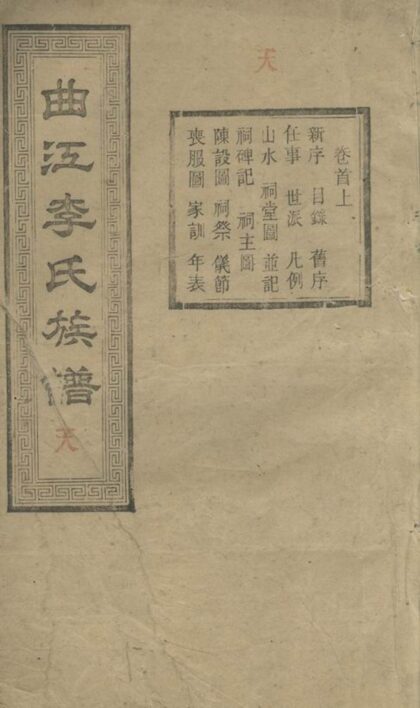 天
卷首上
新序 目錄 舊序
任事 世派 凡例
山水 祠堂圖並記
祠碑記 祠主圖
陳設圖 祠祭儀節
喪服圖 家訓 年表
曲江李氏族譜
天